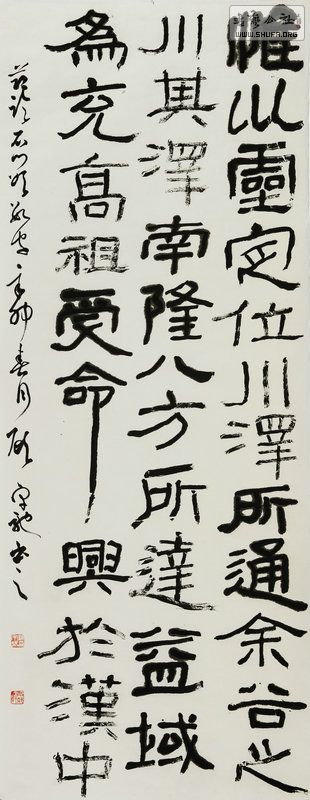 書藝公社
WWW.SHUFA.ORG
惟巛靈定位川澤所通余谷之
川其澤南隆八方所達益域
為充高祖受命興於漢中
節臨石門頌 辛卯春月 書之